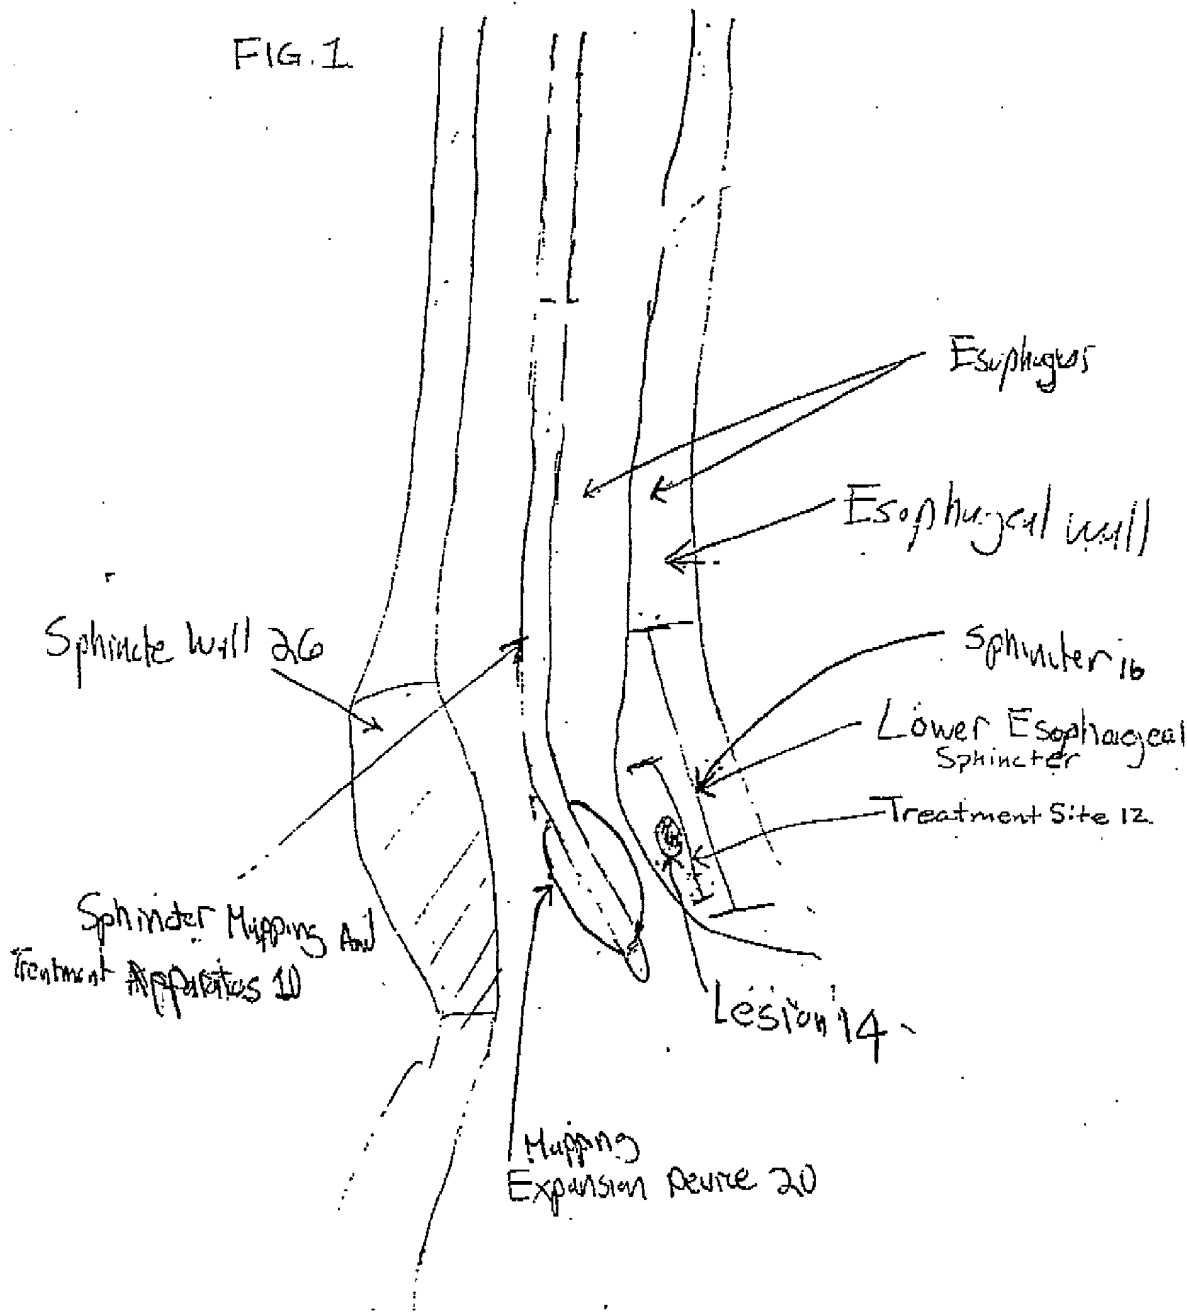 FIG. 1
Esophagus
Esophageal Wall
Sphincte Wall 26
Sphincter 16
Lower Esophageal
Sphincter
Treatment Site 12
Sphincter Mapping And
Treatment Apparatus 10
Lesion 14
Mapping
Expansion Device 20